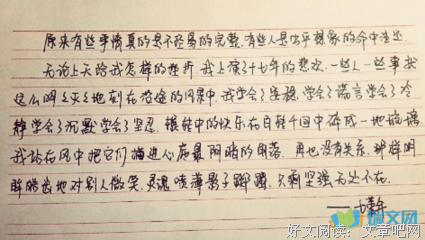 原来有些事情真的是不轻易的完整,有些人是出乎想象的命中注定
无论上天给我怎样的挫折,我上演了十七年的悲欢,一些人一些事就
这么明明灭灭地刻在沿途的风景中,我学会了坚强,学会了谎言学会了冷
静学会了沉默学会了坚忍,辗转中的快乐在百转千回中碎成一地琉璃
我站在风中把它们扫进心底最阴暗的角落,再也没有关系,那样明
眸皓齿地对别人微笑,灵魂喷薄影子踯躅,只剩坚强无处不在。
好文阅读:文章吧网